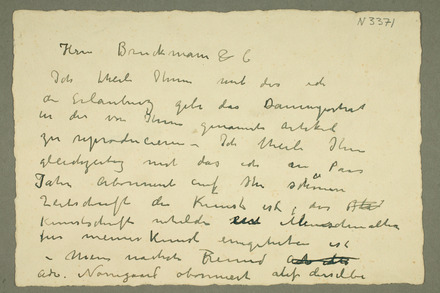 N 3371
Herrn Bruckmann & C
Ich theile Ihnen mit das ich
die Erlaubniz gebe das
in der von Ihnen genannte Artikel
zu reproducieren – Ich theile Ihn
gleichzeitig mit das ich ein Paar
Jahre abonnent auf Ihr schönen
Zeitschrift die Kunst ist, das
Kunstschrift Menschenalter
für meiner Kunst eingetreten ist
– Mein nächste Freund
adv. Nørregaard abonnent auf derselbe